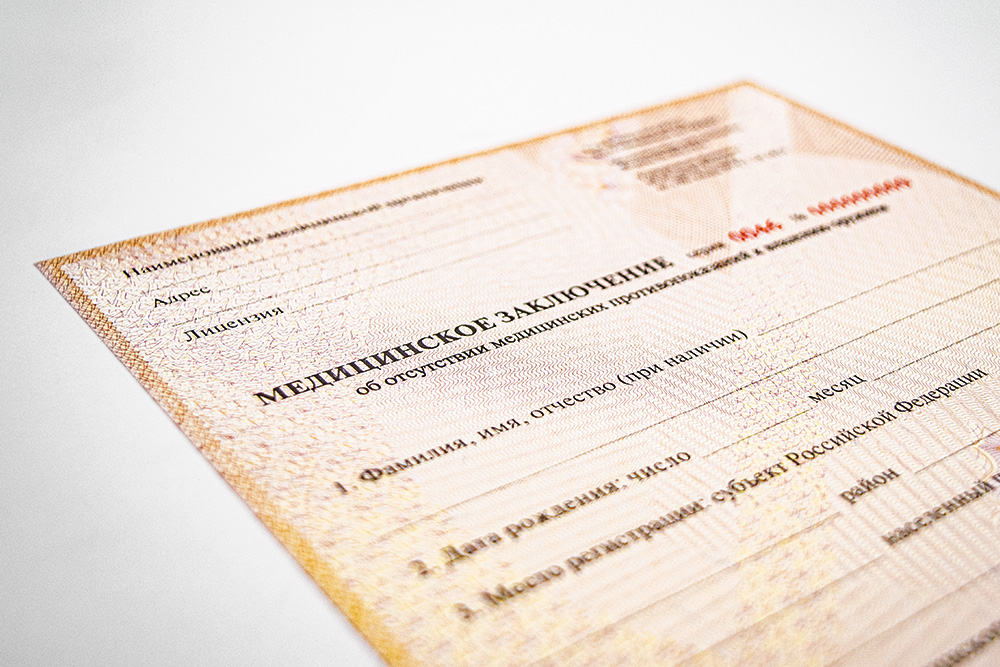 Наименование медицинской организации
Адрес
Лицензия
серия 0046 № 000000000
МЕДИЦИНСКОЕ ЗАКЛЮЧЕНИЕ
об отсутствии медицинских противопоказаний к владению оружием
1. Фамилия, имя, отчество (при наличии)
2. Дата рождения: число месяц
3. Место регистрации: субъект Российской Федерации
район
населенный